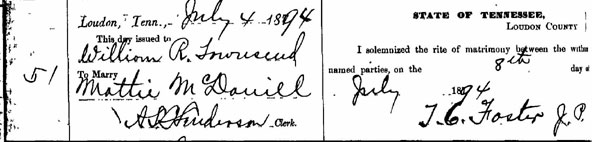 51
Loudon, Tenn., July 4 1894
This day issued to
William R. Townsend
To Marry
Mattie McDaniel
Henderson Clerk.
STATE OF TENNESSEE,
LOUDON COUNTY
I solemnized the rite of matrimony between the within
named parties, on the 8th day of
July 1894
T. C. Foster J. P.